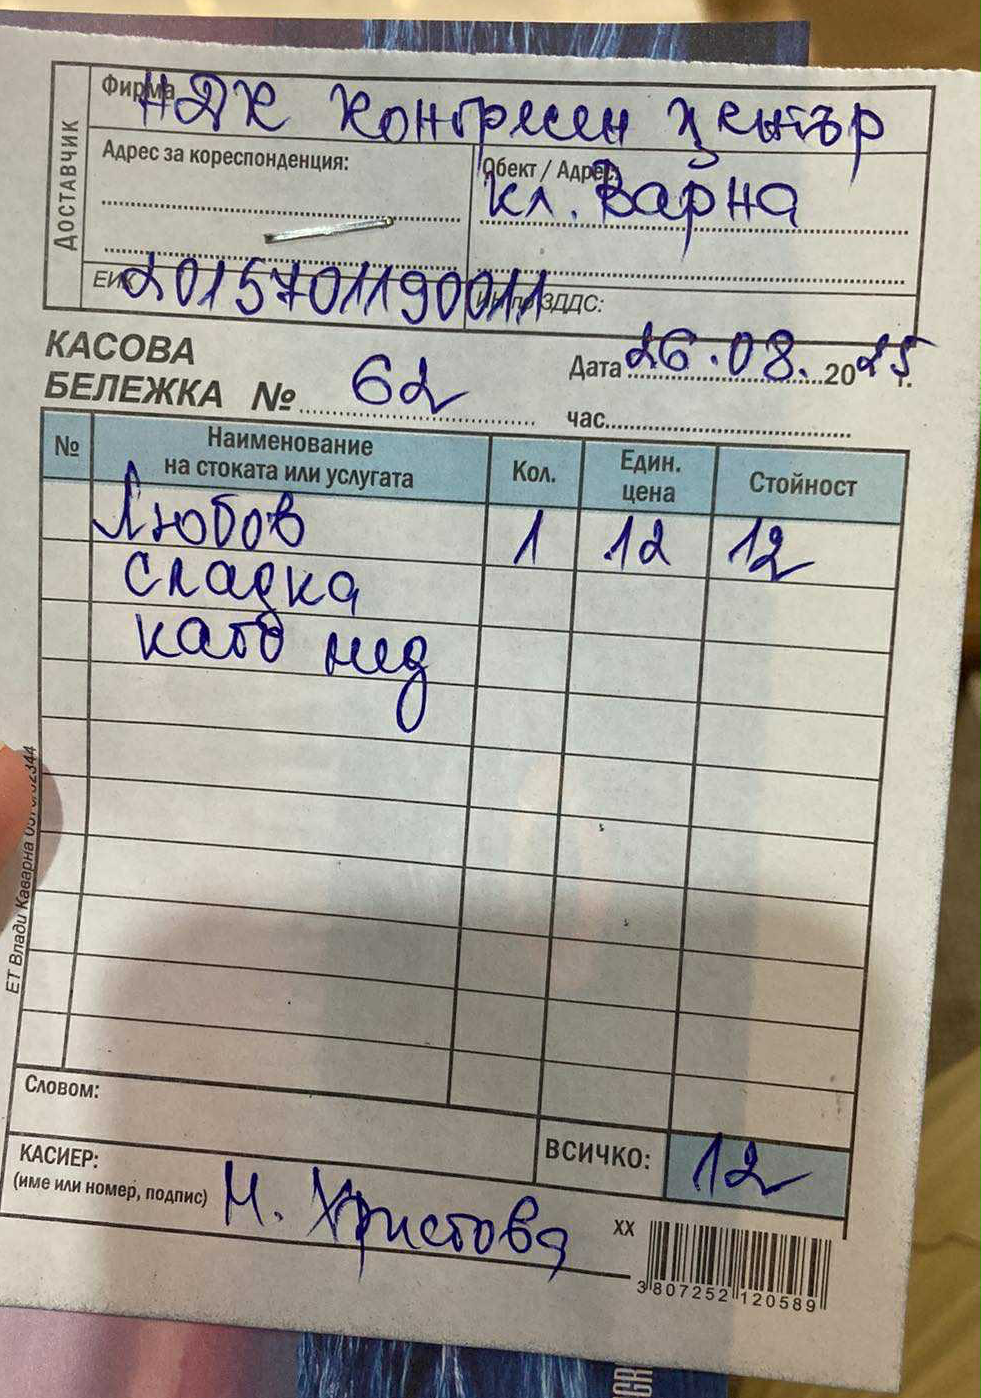 ДОСТАВЧИК
Фирма НДК Конгресен център
Адрес за кореспонденция:
Обект / Адрес:
кл. Варна
ЕИК 2015701190011 ЗДДС:
КАСОВА
БЕЛЕЖКА № 62
Дата 26.08.2025 г.
час
№ Наименование на стоката или услугата Кол. Един. цена Стойност
Любов 1 12 12
сладка
като мед
Словом:
ВСИЧКО: 12
КАСИЕР:
(име или номер, подпис) Н. Христова
XX
3 807252 120589
ЕТ Влади Каварна